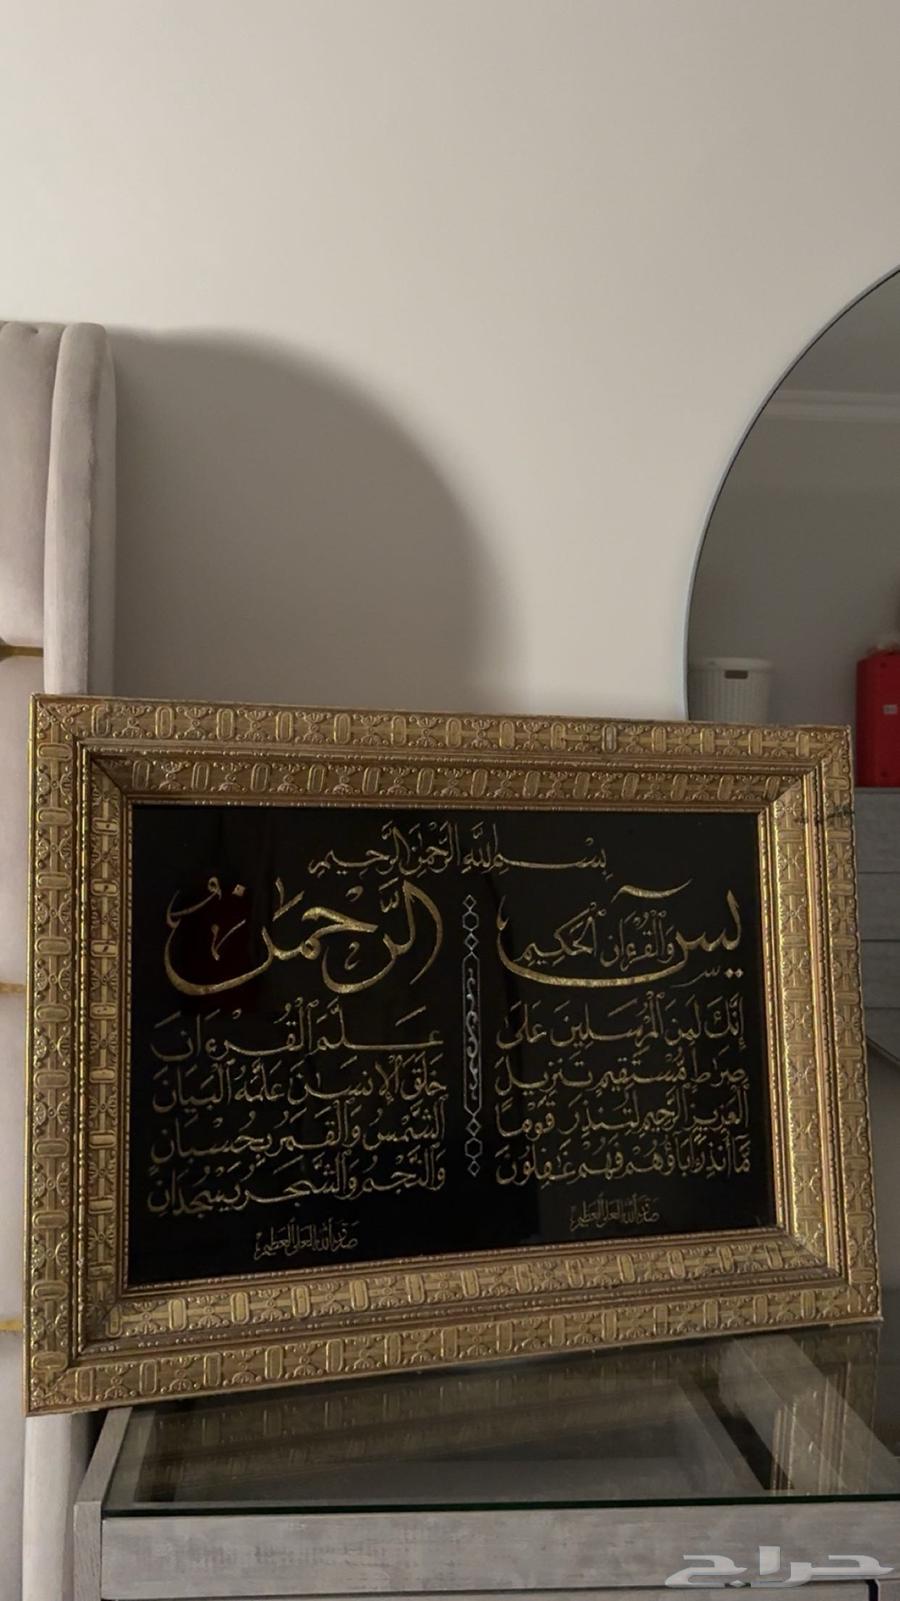 بسم الله الرحمن الرحيم
يس
والقرءان الحكيم
إنك لمن المرسلين على
صرط مستقيم تنزيل
العزيز الرحيم لتنذر قوما
ما أنذر ءاباؤهم فهم غفلون
صدق الله العلي العظيم
الرحمن
علم القرءان
خلق الإنسن علمه البيان
الشمس والقمر بحسبان
والنجم والشجر يسجدان
صدق الله العلي العظيم
حراج